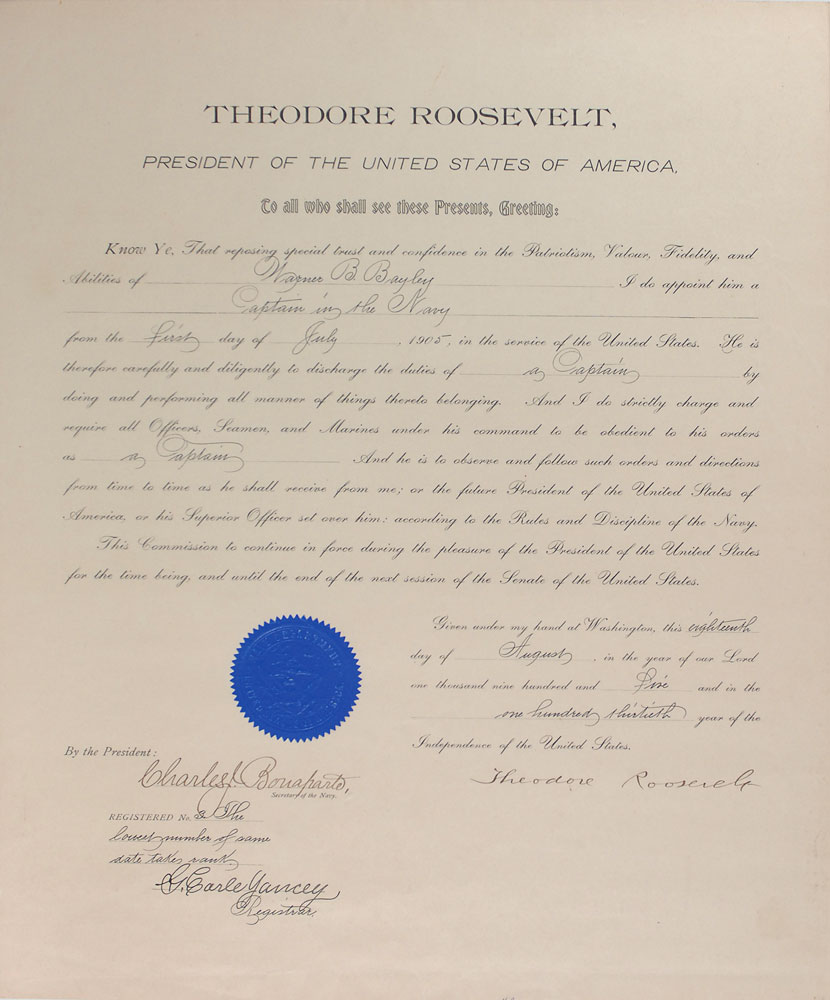 THEODORE ROOSEVELT,
PRESIDENT OF THE UNITED STATES OF AMERICA,
To all who shall see these Presents, Greeting:
Know Ye, That reposing special trust and confidence in the Patriotism, Valour, Fidelity, and
Abilities of Warner B. Bayley I do appoint him a
Captain in the Navy
from the first day of July, 1905, in the service of the United States. He is
therefore carefully and diligently to discharge the duties of a Captain by
doing and performing all manner of things thereto belonging. And I do strictly charge and
require all Officers, Seamen, and Marines under his command to be obedient to his orders
as a Captain And he is to observe and follow such orders and directions
from time to time as he shall receive from me; or the future President of the United States of
America, or his Superior Officer set over him; according to the Rules and Discipline of the Navy.
This Commission to continue in force during the pleasure of the President of the United States
for the time being, and until the end of the next session of the Senate of the United States.
Given under my hand at Washington, this eighteenth
day of August, in the year of our Lord
one thousand nine hundred and five and in the
one hundred thirtieth year of the
Independence of the United States.
Theodore Roosevelt
By the President:
Charles J. Bonaparte,
Secretary of the Navy.
REGISTERED No. 2 The
lowest number of same
date takes rank
G. Earle Yancey
Registrar.